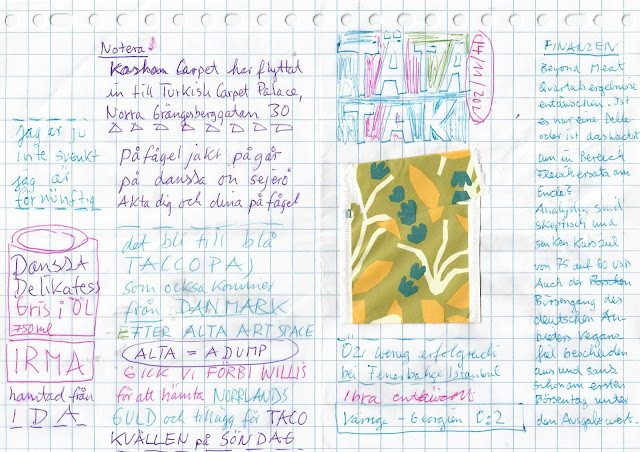 Notera!
Kashan Carpet har flyttat
in till Turkish Carpet Palace,
Norra Grängesberggatan 30
jag är ju
inte svenkt
jag är
förnünftig
Påfågel jakt pågår
på danska ön sejerö
Akta dig och dina påfågel
DANSSA
Delikatess
Gris i ÖL
750 ml
IRMA
hämtad från
IDA
det bli till blå
TACCOPAJ
som också kommer
från DANMARK
EFTER ALTA ART SPACE
ALTA = A DUMP
GICK VI FÖRBI WILLIS
för att hämta NORRLANDS
GULD och tillägg för TACO
KVÄLLEN på SÖNDAG
TÄTA
TAK!
14/11/202
Özi wenig erfolgreich
bei Fenerbahce Istanbul
Ibra enttäuscht
Värige - Georgien 0:2
FINANZEN
Beyond Meat
Quartalsergebnisse
entäuschen. Ist
es nur eine Delle
oder ist das Wachst
um im Bereich
Fleischersatz am
Ende?
Analysten sind
skeptisch und
senken Kursziel
von 75 auf 60 USD
Auch der Börschen
Börsengang des
deutschen An-
bieters Veganz
fiel bescheiden
aus und sank
schon am ersten
Börsentag unter
den Ausgabewert.